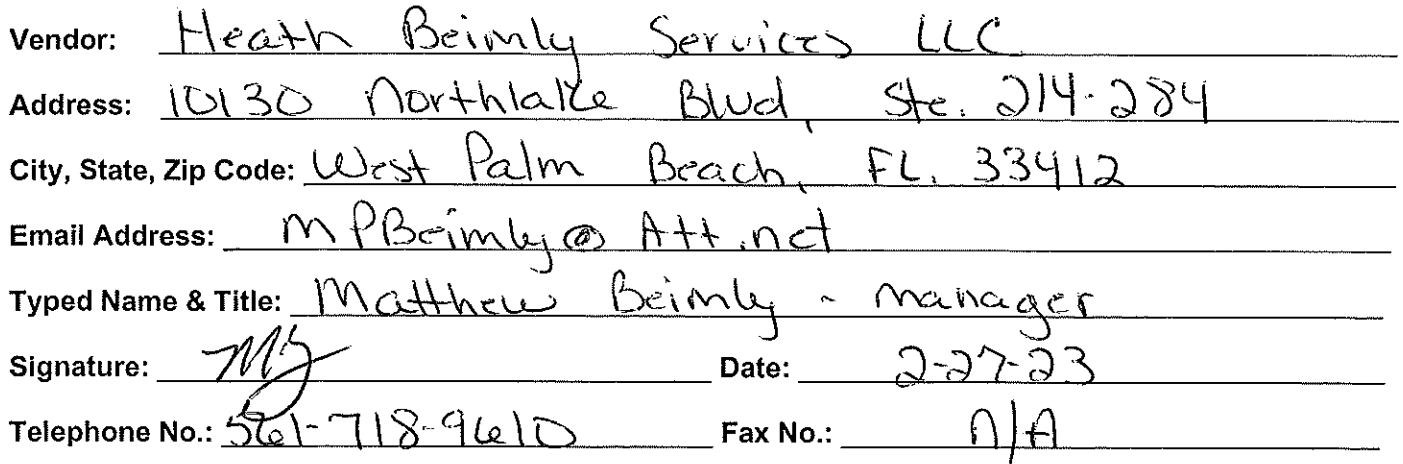 Vendor: Heath Beimly Services LLC
Address: 10130 Northlake Blvd, Ste. 214-284
City, State, Zip Code: West Palm Beach, FL. 33412
Email Address: MPBeimly@Att.net
Typed Name & Title: Matthew Beimly - Manager
Signature: Date: 2-27-23
Telephone No.: 561-718-9610 Fax No.: N/A